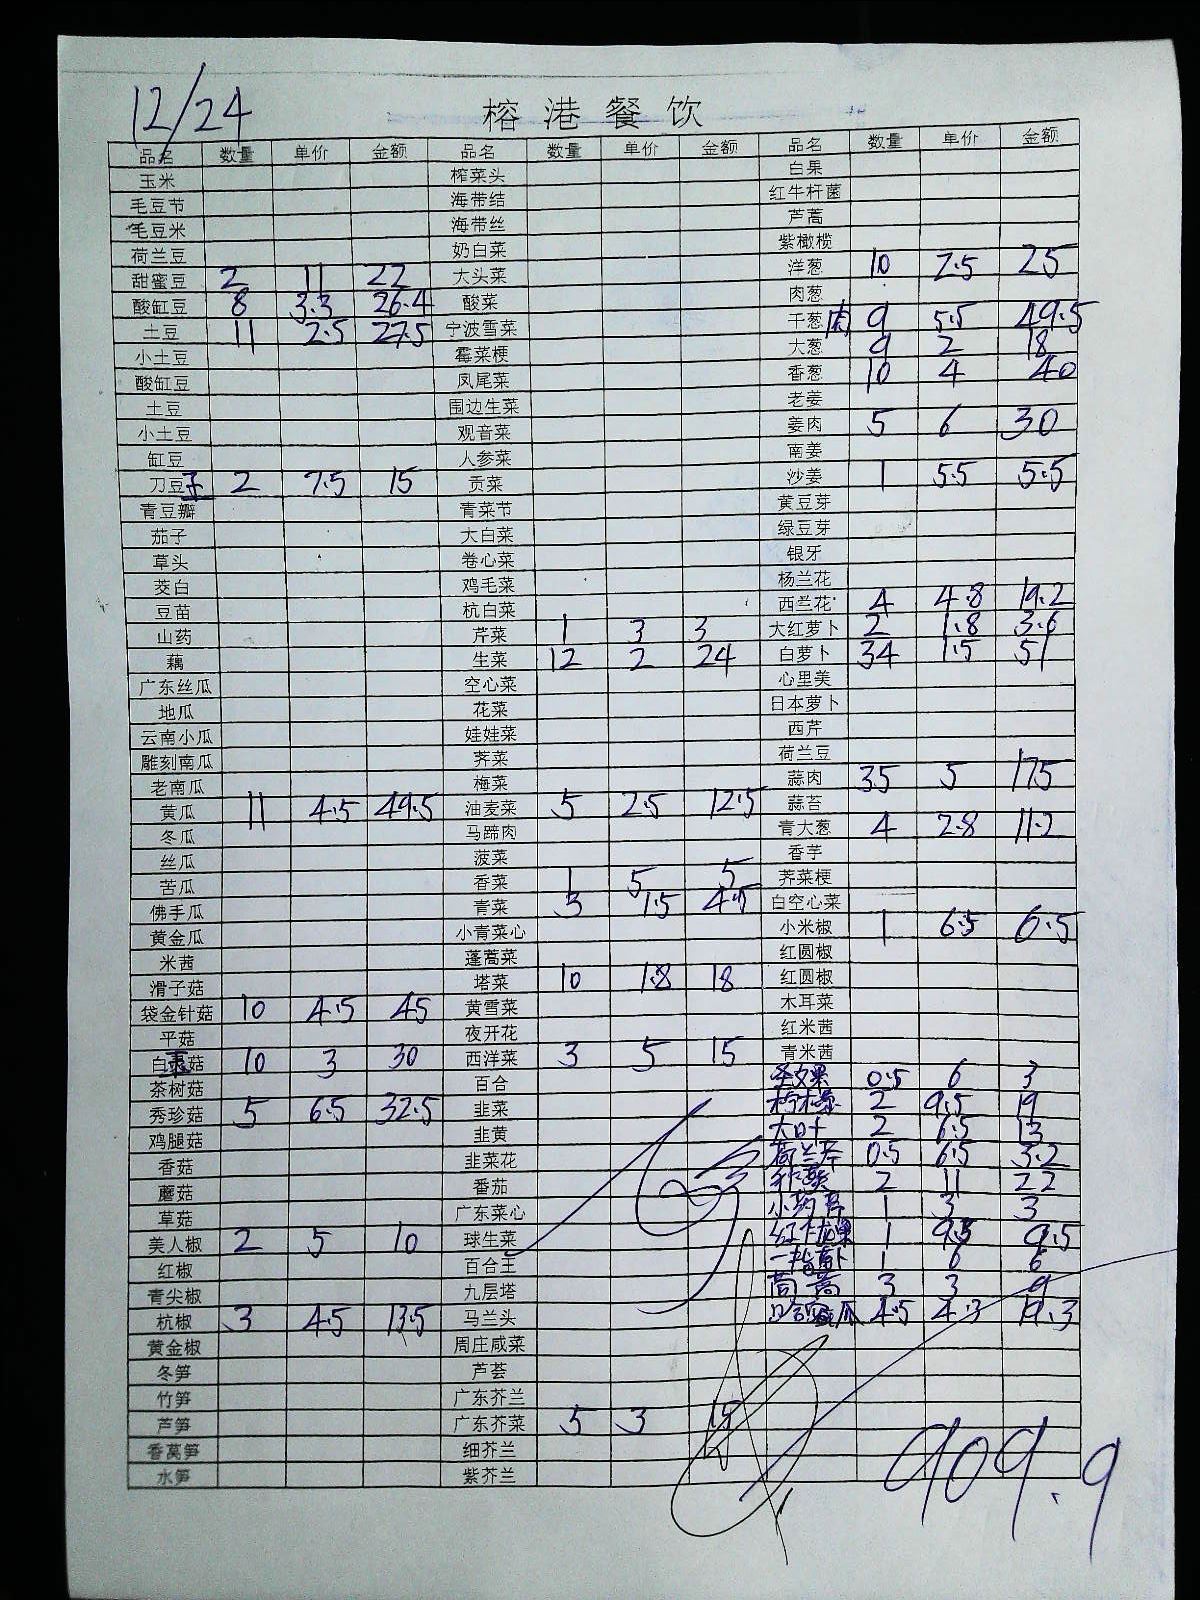 12/24
榕港餐饮
品名 数量 单价 金额 品名 数量 单价 金额 品名 数量 单价 金额
玉米 榨菜头 白果
毛豆节 海带结 红牛杆菌
毛豆米 海带丝 芦蒿
荷兰豆 奶白菜 紫橄榄
甜蜜豆 2 11 22 大头菜 洋葱 10 2.5 25
酸缸豆 8 3.3 26.4 酸菜 肉葱
土豆 11 2.5 27.5 宁波雪菜 干葱肉 9 5.5 49.5
小土豆 霉菜梗 大葱 9 2 18
酸缸豆 凤尾菜 香葱 10 4 40
土豆 围边生菜 老姜
小土豆 观音菜 姜肉 5 6 30
缸豆 人参菜 南姜
刀豆王 2 7.5 15 贡菜 沙姜 1 5.5 5.5
青豆瓣 青菜节 黄豆芽
茄子 大白菜 绿豆芽
草头 卷心菜 银牙
茭白 鸡毛菜 杨兰花
豆苗 杭白菜 西兰花 4 4.8 19.2
山药 芹菜 1 3 3 大红萝卜 2 1.8 3.6
藕 生菜 12 2 24 白萝卜 34 1.5 51
广东丝瓜 空心菜 心里美
地瓜 花菜 日本萝卜
云南小瓜 娃娃菜 西芹
雕刻南瓜 荠菜 荷兰豆
老南瓜 梅菜 蒜肉 35 5 175
黄瓜 11 4.5 49.5 油麦菜 5 2.5 12.5 蒜苔
冬瓜 马蹄肉 青大葱 4 2.8 11.2
丝瓜 菠菜 香芋
苦瓜 香菜 1 5 5 荠菜梗
佛手瓜 青菜 3 1.5 4.5 白空心菜
黄金瓜 小青菜心 小米椒 1 6.5 6.5
米茜 蓬蒿菜 红圆椒
滑子菇 塔菜 10 1.8 18 红圆椒
袋金针菇 10 4.5 45 黄雪菜 木耳菜
平菇 夜开花 红米茜
白菇 10 3 30 西洋菜 3 5 15 青米茜
茶树菇 百合 圣女果 0.5 6 3
秀珍菇 5 6.5 32.5 韭菜 柠檬 2 9.5 19
鸡腿菇 韭黄 大叶 2 6.5 13
香菇 韭菜花 荷兰芹 0.5 6.5 3.2
蘑菇 番茄 2 11 22
草菇 广东菜心 1 3 3
美人椒 2 5 10 球生菜 红火龙果 1 9.5 9.5
红椒 百合王 一指萝卜 1 6 6
青尖椒 九层塔 茼蒿 3 3 9
杭椒 3 4.5 13.5 马兰头 哈密瓜 4.5 4.3 19.3
黄金椒 周庄咸菜
冬笋 芦荟
竹笋 广东芥兰
芦笋 广东芥菜 5 3 15
香莴笋 细芥兰
水笋 紫芥兰
909.9